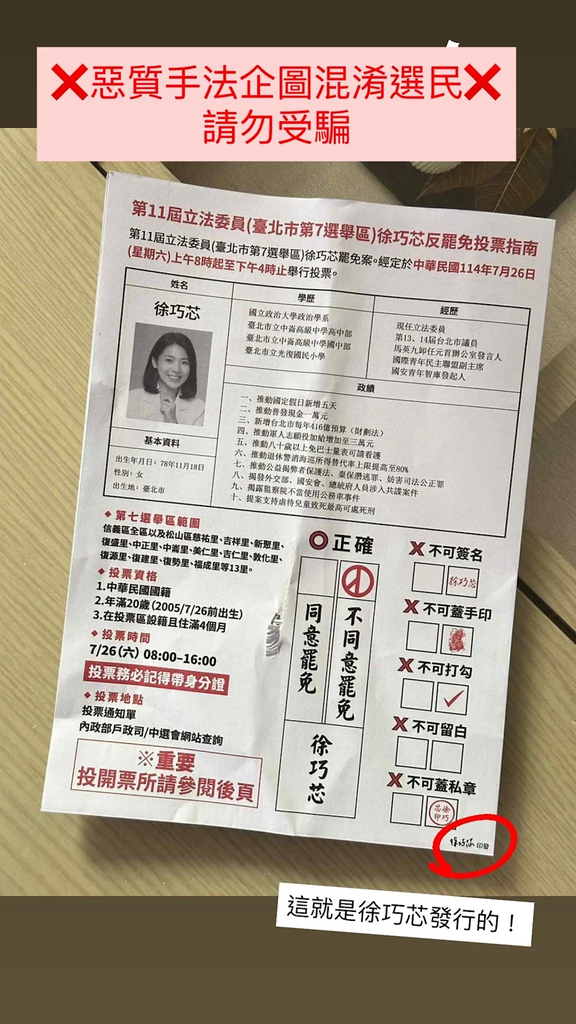 ❌惡質手法企圖混淆選民❌
請勿受騙
第11屆立法委員(臺北市第7選舉區)徐巧芯反罷免投票指南
第11屆立法委員(臺北市第7選舉區)徐巧芯罷免案。經定於中華民國114年7月26日
(星期六)上午8時起至下午4時止舉行投票。
姓名
徐巧芯
基本資料
出生年月日：78年11月18日
性別：女
出生地：臺北市
學歷
國立政治大學政治學系
臺北市立中崙高級中學高中部
臺北市立中崙高級中學國中部
臺北市立光復國民小學
經歷
現任立法委員
第13、14屆台北市議員
馬英九卸任元首辦公室發言人
國際青年民主聯盟副主席
國安青年智庫發起人
政績
一、推動國定假日新增五天
二、推動普發現金一萬元
三、新增台北市每年416億預算（財劃法）
四、推動軍人志願役加給增加至三萬元
五、推動八十歲以上免巴士量表可請看護
六、推動退休警消海巡所得替代率上限提高至80%
七、推動公益揭弊者保護法、棄保潛逃罪、妨害司法公正罪
八、揭發外交部、國安會、總統府人員涉入共諜案件
九、揭露監察院不當使用公務車事件
十、提案支持虐待兒童致死最高可處死刑
◆ 第七選舉區範圍
信義區全區以及松山區慈祐里、吉祥里、新聚里、
復盛里、中正里、中崙里、美仁里、吉仁里、敦化里、
復源里、復建里、復勢里、福成里等13里。
◆ 投票資格
1.中華民國國籍
2.年滿20歲（2005/7/26前出生）
3.在投票區設籍且住滿4個月
◆ 投票時間
7/26(六) 08:00–16:00
投票務必記得帶身分證
◆ 投票地點
投票通知單
內政部戶政司/中選會網站查詢
※重要
投開票所請參閱後頁
⭕正確
同意罷免
不同意罷免
徐巧芯
✗ 不可簽名
徐巧芯
✗ 不可蓋手印
✗ 不可打勾
✗ 不可留白
✗ 不可蓋私章
徐巧芯印
徐巧芯 印發
這就是徐巧芯發行的！